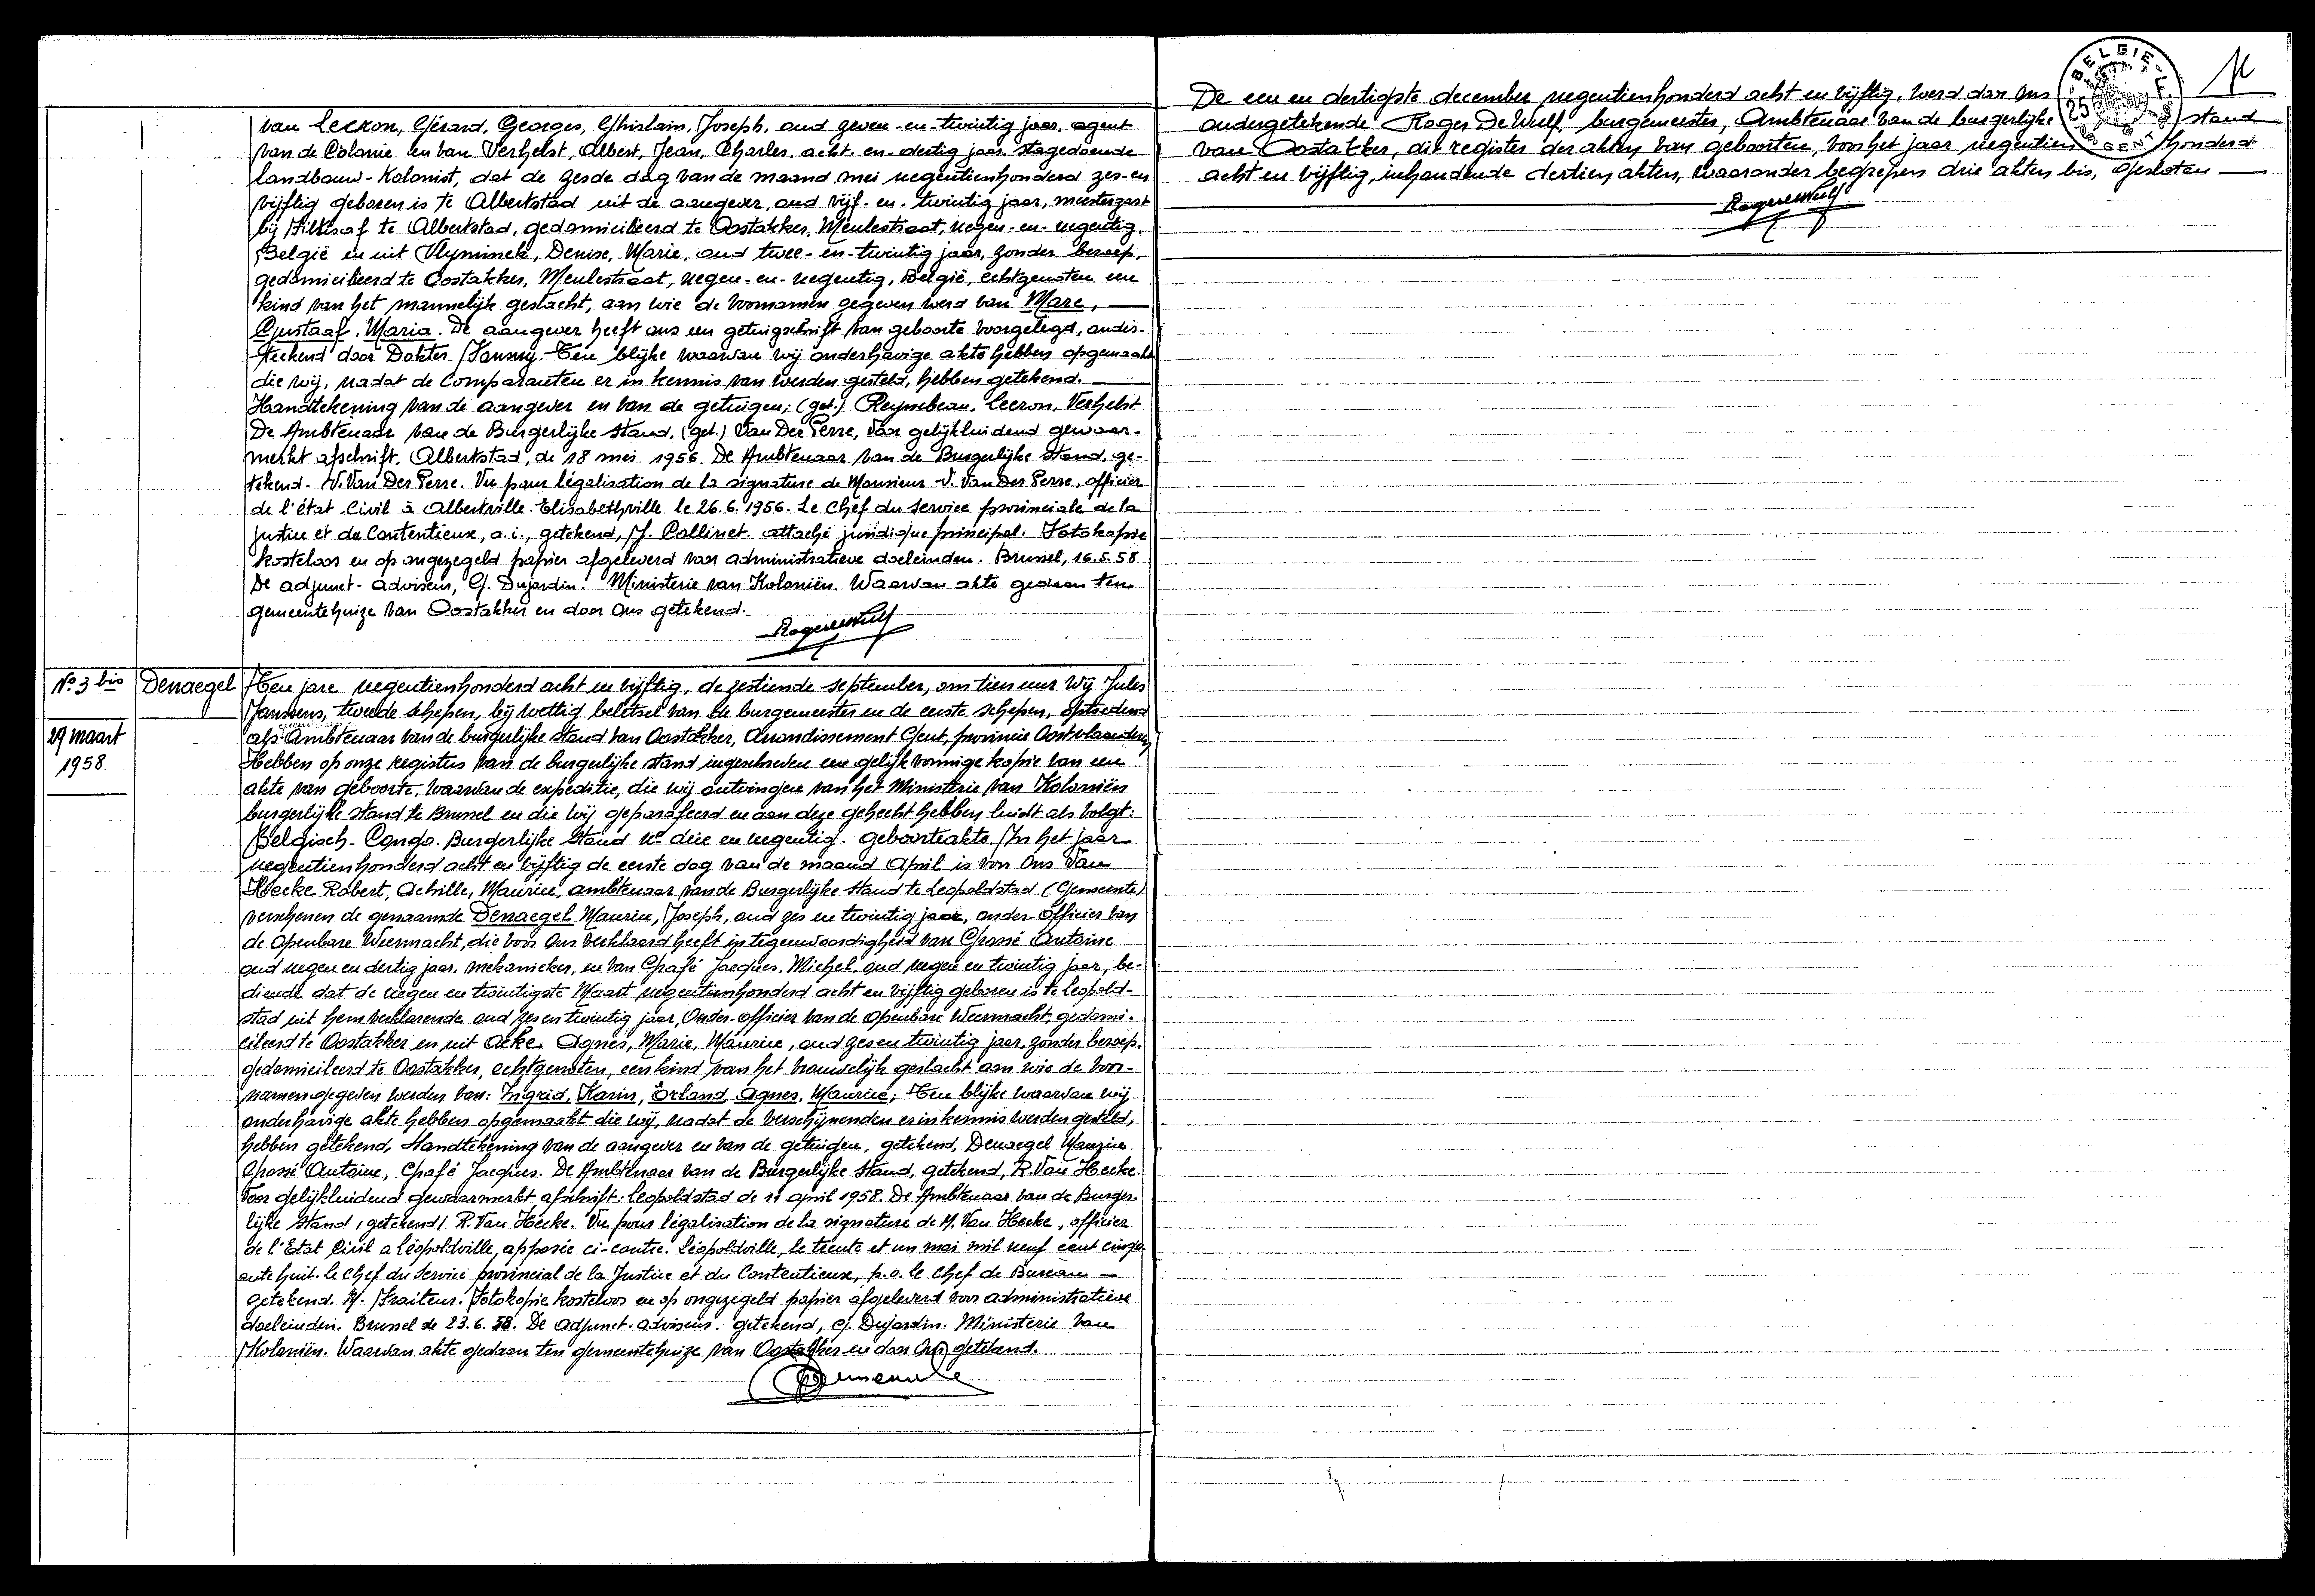 van Lecron, Gérard, Georges, Ghislain, Joseph, oud zeven-en-twintig jaar, agent
van de Colonie en van Verhelst, Albert, Jean, Charles, acht-en-dertig jaar, stagedoende
landbouw-Kolonist, dat de zesde dag van de maand mei negentienhonderd zes-en
vijftig geboren is te Albertstad uit de aangever, oud vijf-en-twintig jaar, meestergast
bij Filtisaf te Albertstad, gedomicilieerd te Oostakker, Meulestraat, negen-en-negentig,
België en uit Vlyminck, Denise, Marie, oud twee-en-twintig jaar, zonder beroep,
gedomicilieerd te Oostakker, Meulestraat, negen-en-negentig, België, echtgenoten een
kind van het mannelijk geslacht, aan wie de voornamen gegeven werd van Marc,
Gustaaf, Maria. De aangever heeft ons een getuigschrift van geboorte voorgelegd, onder-
tekend door Dokter. Ten blijke waarvan wij onderhavige akte hebben opgemaakt
die wij, nadat de Comparanten er in kennis van werden gesteld, hebben getekend.
Handtekening van de aangever en van de getuigen; (get.) Reynebeau, Lecron, Verhelst
De Ambtenaar van de Burgerlijke stand, (get.) Van Der Perre, Voor gelijkluidend gewaar-
merkt afschrift. Albertstad, de 18 mei 1956. De Ambtenaar van de Burgerlijke Stand, ge-
tekend - V. Van Der Perre. Vu pour légalisation de la signature de Monsieur V. Van Der Perre, officier
de l'état Civil à Albertville. Elisabethville le 26.6.1956. Le Chef du Service provinciale de la
Justice et du Contentieux, a.i., getekend, J. Collinet. attaché juridique principal. Fotokopie
kosteloos en op ongezegeld papier afgeleverd voor administratieve doeleinden. Brussel, 16.5.58
De adjunct-adviseur, G. Dujardin. Ministerie van Koloniën. Waarvan akte gedaan ten
gemeentehuize van Oostakker en door Ons getekend.
Roger de Wulf
No 3 bis
Denaegel
29 maart
1958
Ten jare negentienhonderd acht en vijftig, de zestiende september, om tien uur Wij Jules
Janssens, tweede schepen, bij wettig beletsel van de burgemeester en de eerste schepen, optredend
als Ambtenaar van de burgerlijke stand van Oostakker, Arrondissement Gent, provincie Oostvlaanderen
Hebben op onze registers van de burgerlijke stand ingeschreven een gelijkvormige kopie van een
akte van geboorte, waarvan de expeditie, die wij ontvingen van het Ministerie van Koloniën
burgerlijke stand te Brussel en die wij geparafeerd en aan deze gehecht hebben luidt als volgt:
Belgisch-Congo. Burgerlijke Stand no drie en negentig. geboorteakte. In het jaar
negentienhonderd acht en vijftig de eerste dag van de maand April is voor Ons Van
Hecke Robert, Achille, Maurice, ambtenaar van de Burgerlijke stand te Leopoldstad (Gemeente)
verschenen de genaamde Denaegel Maurice, Joseph, oud zes en twintig jaar, onder-officier van
de Openbare Weermacht, die voor Ons verklaard heeft in tegenwoordigheid van Grossé Antoine
oud negen en dertig jaar, mekanieker, en van Grafé Jacques, Michel, oud negen en twintig jaar, be-
diende dat de negen en twintigste Maart negentienhonderd acht en vijftig geboren is te Leopold-
stad uit hem verklarende oud zes en twintig jaar, Onder-officier van de Openbare Weermacht, gedomi-
cilieerd te Oostakker en uit Acke Agnès, Marie, Maurice, oud zes en twintig jaar, zonder beroep,
gedomicilieerd te Oostakker, echtgenoten, een kind van het vrouwelijk geslacht aan wie de voor-
namen gegeven werden van: Ingrid, Karin, Erland, Agnes, Maurice; Ten blijke waarvan wij
onderhavige akte hebben opgemaakt die wij, nadat de verschijnenden er in kennis werden gesteld,
hebben getekend, Handtekening van de aangever en van de getuigen, getekend, Denaegel Maurice
Grossé Antoine, Grafé Jacques. De Ambtenaar van de Burgerlijke Stand, getekend, R. Van Hecke.
Voor gelijkluidend gewaarmerkt afschrift: Leopoldstad de 11 april 1958. De Ambtenaar van de Burger-
lijke Stand, getekend/ R. Van Hecke. Vu pour légalisation de la signature de M. Van Hecke, officier
de l'Etat Civil a Léopoldville, apposée ci-contre. Léopoldville, le trente et un mai mil neuf cent cinqu-
ante huit. Le Chef du Service provincial de la Justice et du Contentieux, p.o. le Chef de Bureau —
getekend. M. Fraiteur. Fotokopie kosteloos en op ongezegeld papier afgeleverd voor administratieve
doeleinden. Brussel de 23.6.58. De Adjunct-adviseur. getekend, G. Dujardin. Ministerie van
Koloniën. Waarvan akte gedaan ten gemeentehuize van Oostakker en door Ons getekend.
De een en dertigste december negentienhonderd acht en vijftig, werd door Ons
ondergetekende Roger De Wulf burgemeester, Ambtenaar van de burgerlijke stand
van Oostakker, die register der akten van geboorten, voor het jaar negentienhonderd
acht en vijftig, inhoudende dertien akten, waaronder begrepen drie akten bis, gesloten —
Roger de Wulf
BELGIE
25
GENT